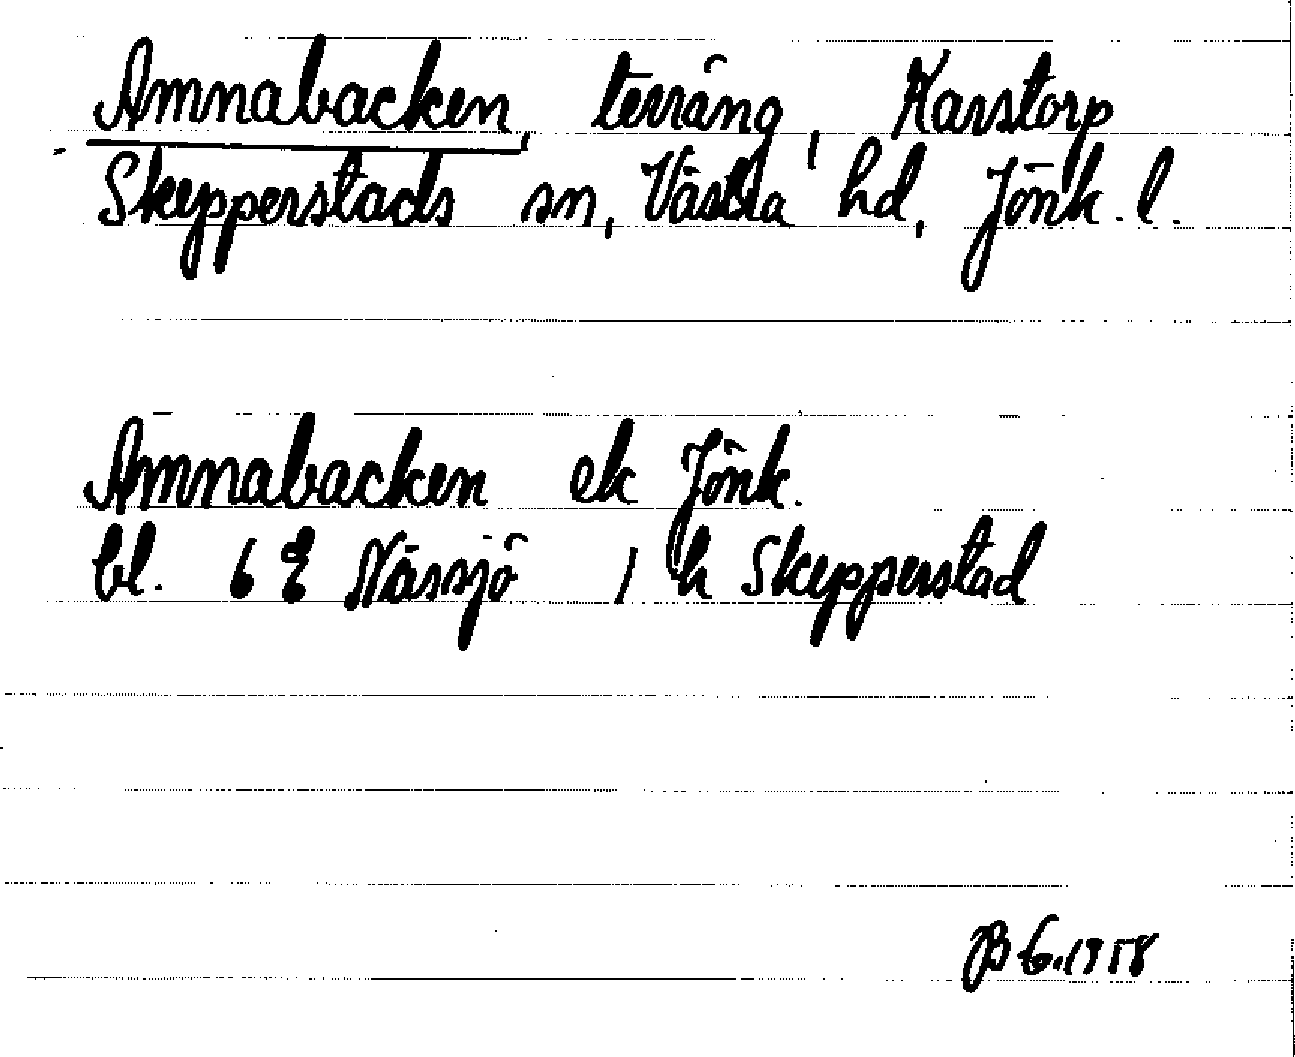 Amnabacken, terräng, Karstorp
Skepperstads sn, Västra hd, Jönk. l.
Amnabacken ek Jönk.
bl. 6 E Nässjö 1 h Skepperstad
1958